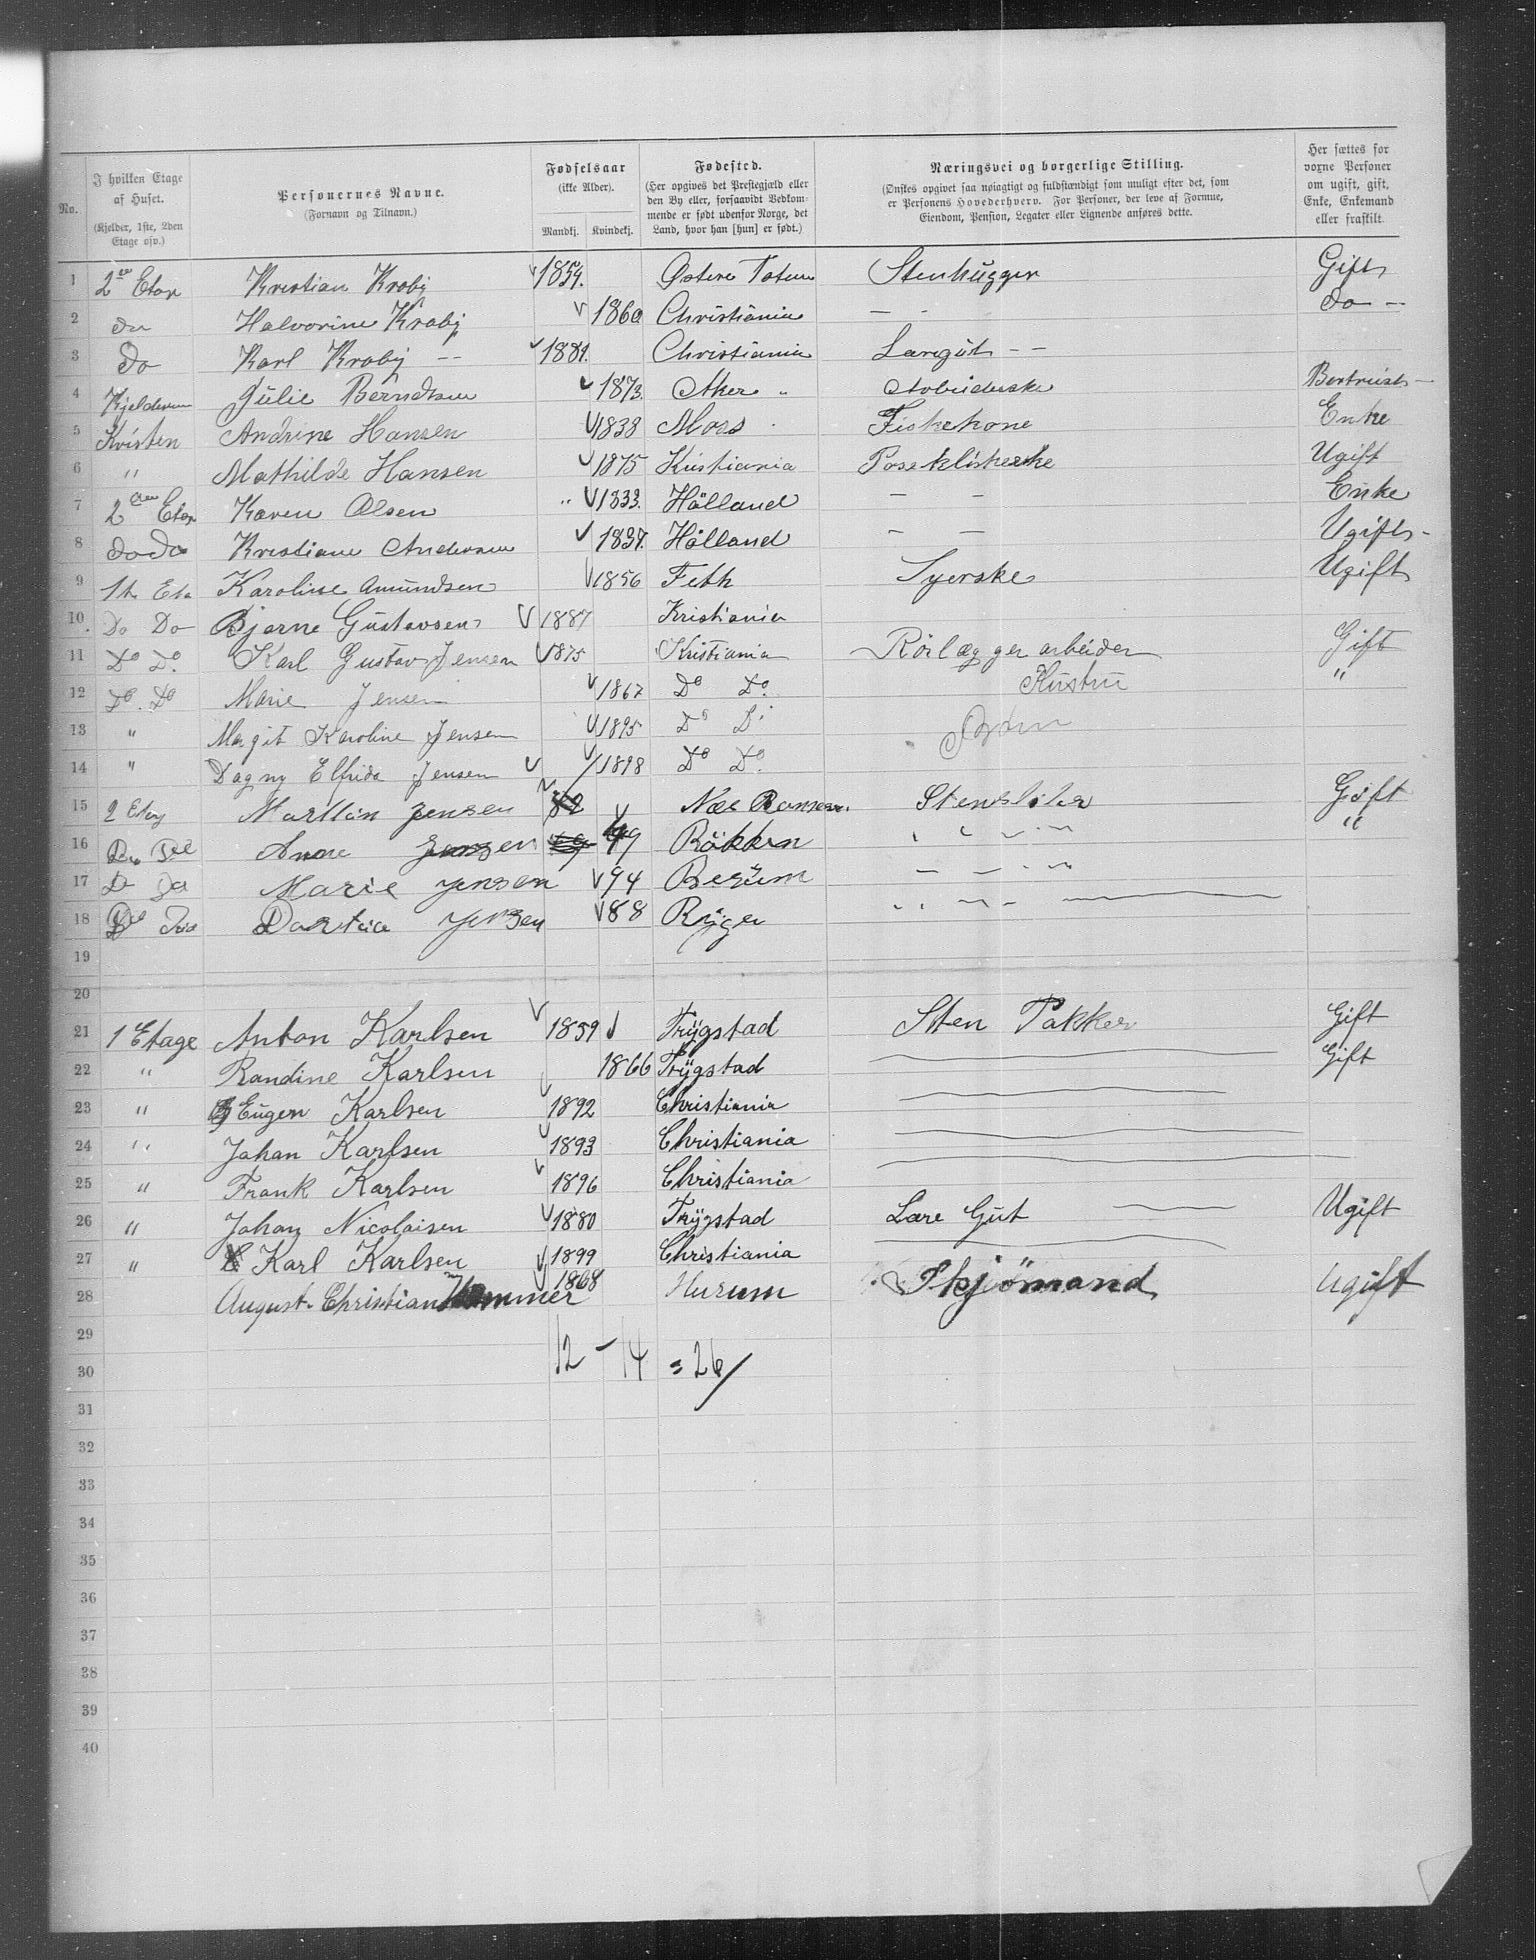 No.
I hvilken Etage af Huset.
(Kjelder, 1ste, 2den Etage osv.)
Personernes Navne.
(Fornavn og Tilnavn.)
Fødselsaar
(ikke Alder).
Mandkj. Kvindekj.
Fødested.
(Her opgives det Præstegjæld eller den By eller, forsaavidt Vedkommende er født udenfor Norge, det Land, hvor han [hun] er født.)
Næringsvei og borgerlige Stilling.
(Ønskes opgivet saa nøiagtigt og fuldstændigt som muligt efter det, som er Personens Hovederhverv. For Personer, der leve af Formue, Eiendom, Pension, Legater eller Lignende anføres dette.)
Her sættes for voxne Personer om ugift, gift, Enke, Enkemand eller fraskilt.
1 2den Etag Kristian Kroby 1859. Østere Toten Stenhugger Gift
2 do Halvorine Kroby 1860 Christiania — - do -
3 Do Karl Kroby -- 1881. Christiania Læregut - -
4 Kjelderen Julie Berndtsen 1873. Aker " Arbeiderske
5 Kvisten Andrine Hansen 1838 Moss Fiskekone Enke
6 " Mathilde Hansen 1875 Kristiania Ugift
7 2den Etag Karen Olsen 1833. Hölland - - Enke
8 do do Kristiane Andersen 1837. Hölland - - Ugift -
9 1te Eta Karoline Amundsen 1856 Feth Syerske Ugift
10. Do Do Bjarne Gustavsen 1887 Kristiania
11 Do Do. Karl Gustav Jensen 1875 Kristiania Rörlægger arbeider Gift
12 Do. Do Marie Jensen 1867 Do Do. Hustru "
13 " Margit Karoline Jensen 1895 Do Do
14 " Dagny Elfrida Jensen 1898 Do Do.
15 2 Etag Martin Jensen 52 Næs Stensliber Gift
16 Anne Jensen 49 Rökken "
17 D Do Marie Jensen 94 Berüm
18 Jensen 88 Ryge
19
20
21 1 Etage Anton Karlsen 1859 Trygstad Sten Pakker Gift
22 " Randine Karlsen 1866 Trygstad Gift
23 " Eugen Karlsen 1892 Christiania
24 " Johan Karlsen 1893 Christiania
25 " Frank Karlsen 1896 Christiania
26 " Johan Nicolaisen 1880 Trygstad Lære Gut Ugift
27 " Karl Karlsen 1899 Christiania
28 August Christian Hammer 1868 Hurum Skjömand Ugift
29
30 12 - 14 = 26/
31
32
33
34
35
36
37
38
39
40